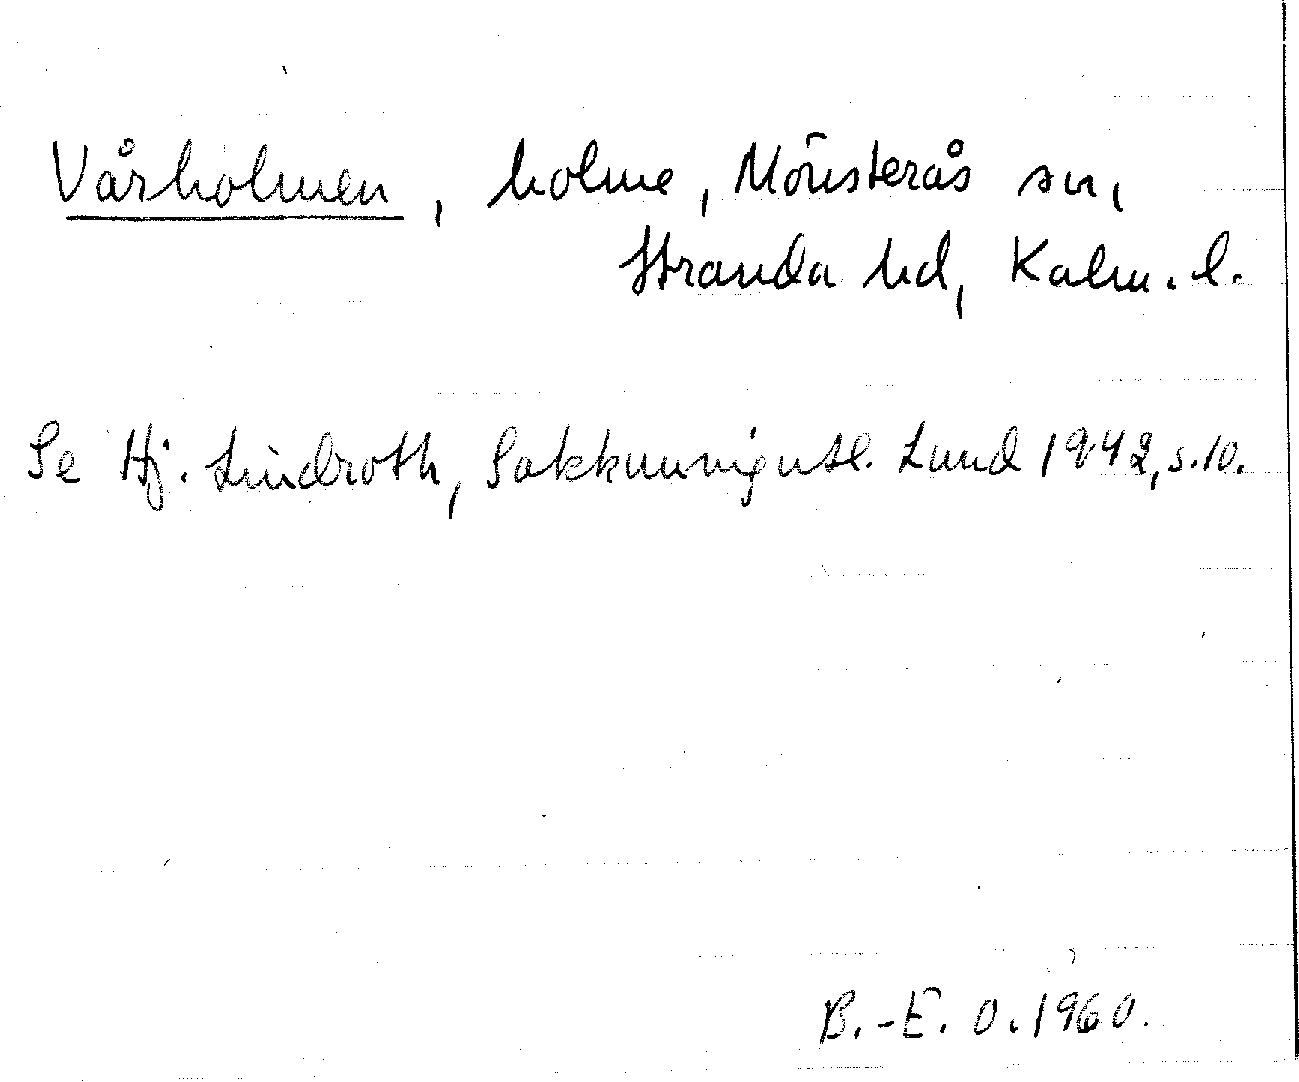 Vårholmen, holme, Mönsterås sn,
Stranda hd, Kalm. l.
Se Hj. Lindroth, Sakkunnigutl. Lund 1942, s. 10.
B.-E. O. 1960.